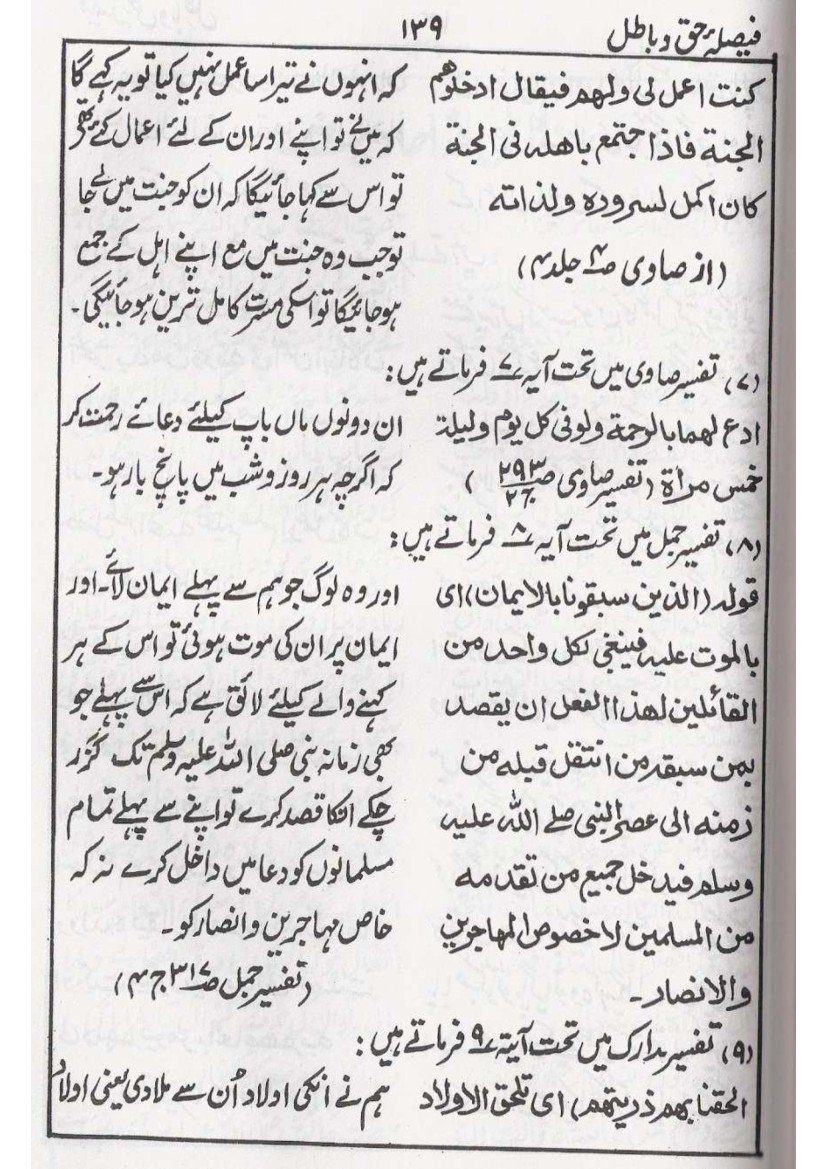 فیصلۂ حق و باطل
۱۳۹
کنت اعمل لی ولھم فیقال ادخلوھم
الجنۃ فاذا اجتمع باھلہ فی الجنۃ
کان اکمل لسرورہ ولذاتہ
(از صاوی جلد ۴)
کہ انہوں نے تیرا سا عمل نہیں کیا تو یہ کہے گا
کہ میں نے تو اپنے اور ان کے لئے اعمال کئے تھے
تو اس سے کہا جائیگا کہ ان کو جنت میں لے جا
تو جب وہ جنت میں مع اپنے اہل کے جمع
ہو جائیگا تو اسکی مسرت کامل ترین ہو جائیگی۔
(۷) تفسیر صاوی میں تحت آیہ ۷ فرماتے ہیں:
ادع لھما بالرحمۃ ولو فی کل یوم ولیلۃ
خمس مراۃ (تفسیر صاوی ص ۲۹۳ / ج۲)
ان دونوں ماں باپ کیلئے دعائے رحمت کر
کہ اگرچہ ہر روز و شب میں پانچ بار ہو۔
(۸) تفسیر جمل میں تحت آیہ ۸ فرماتے ہیں:
قولہ (الذین سبقونا بالایمان) ای
بالموت علیہ فینغی لکل واحد من
القائلین لھذا الفعل ان یقصد
بمن سبقہ من انتقل قبلہ من
زمنہ الی عصر النبی صلے اللہ علیہ
وسلم فیدخل جمیع من تقدمہ
من المسلمین لا خصوص المھاجرین
والانصار۔
اور وہ لوگ جو ہم سے پہلے ایمان لائے۔ اور
ایمان پر ان کی موت ہوئی تو اس کے ہر
کہنے والے کیلئے لائق ہے کہ اس سے پہلے جو
بھی زمانہ نبی صلی اللہ علیہ وسلم تک گزر
چکے انکا قصد کرے تو اپنے سے پہلے تمام
مسلمانوں کو دعا میں داخل کرے نہ کہ
خاص مہاجرین و انصار کو۔
(تفسیر جمل ص ۳۱۷ ج ۴)
(۹) تفسیر مدارک میں تحت آیۃ ۹ فرماتے ہیں:
الحقنا بھم ذریتھم) ای تلحق الاولاد
ہم نے انکی اولاد اُن سے ملا دی یعنی اولاد